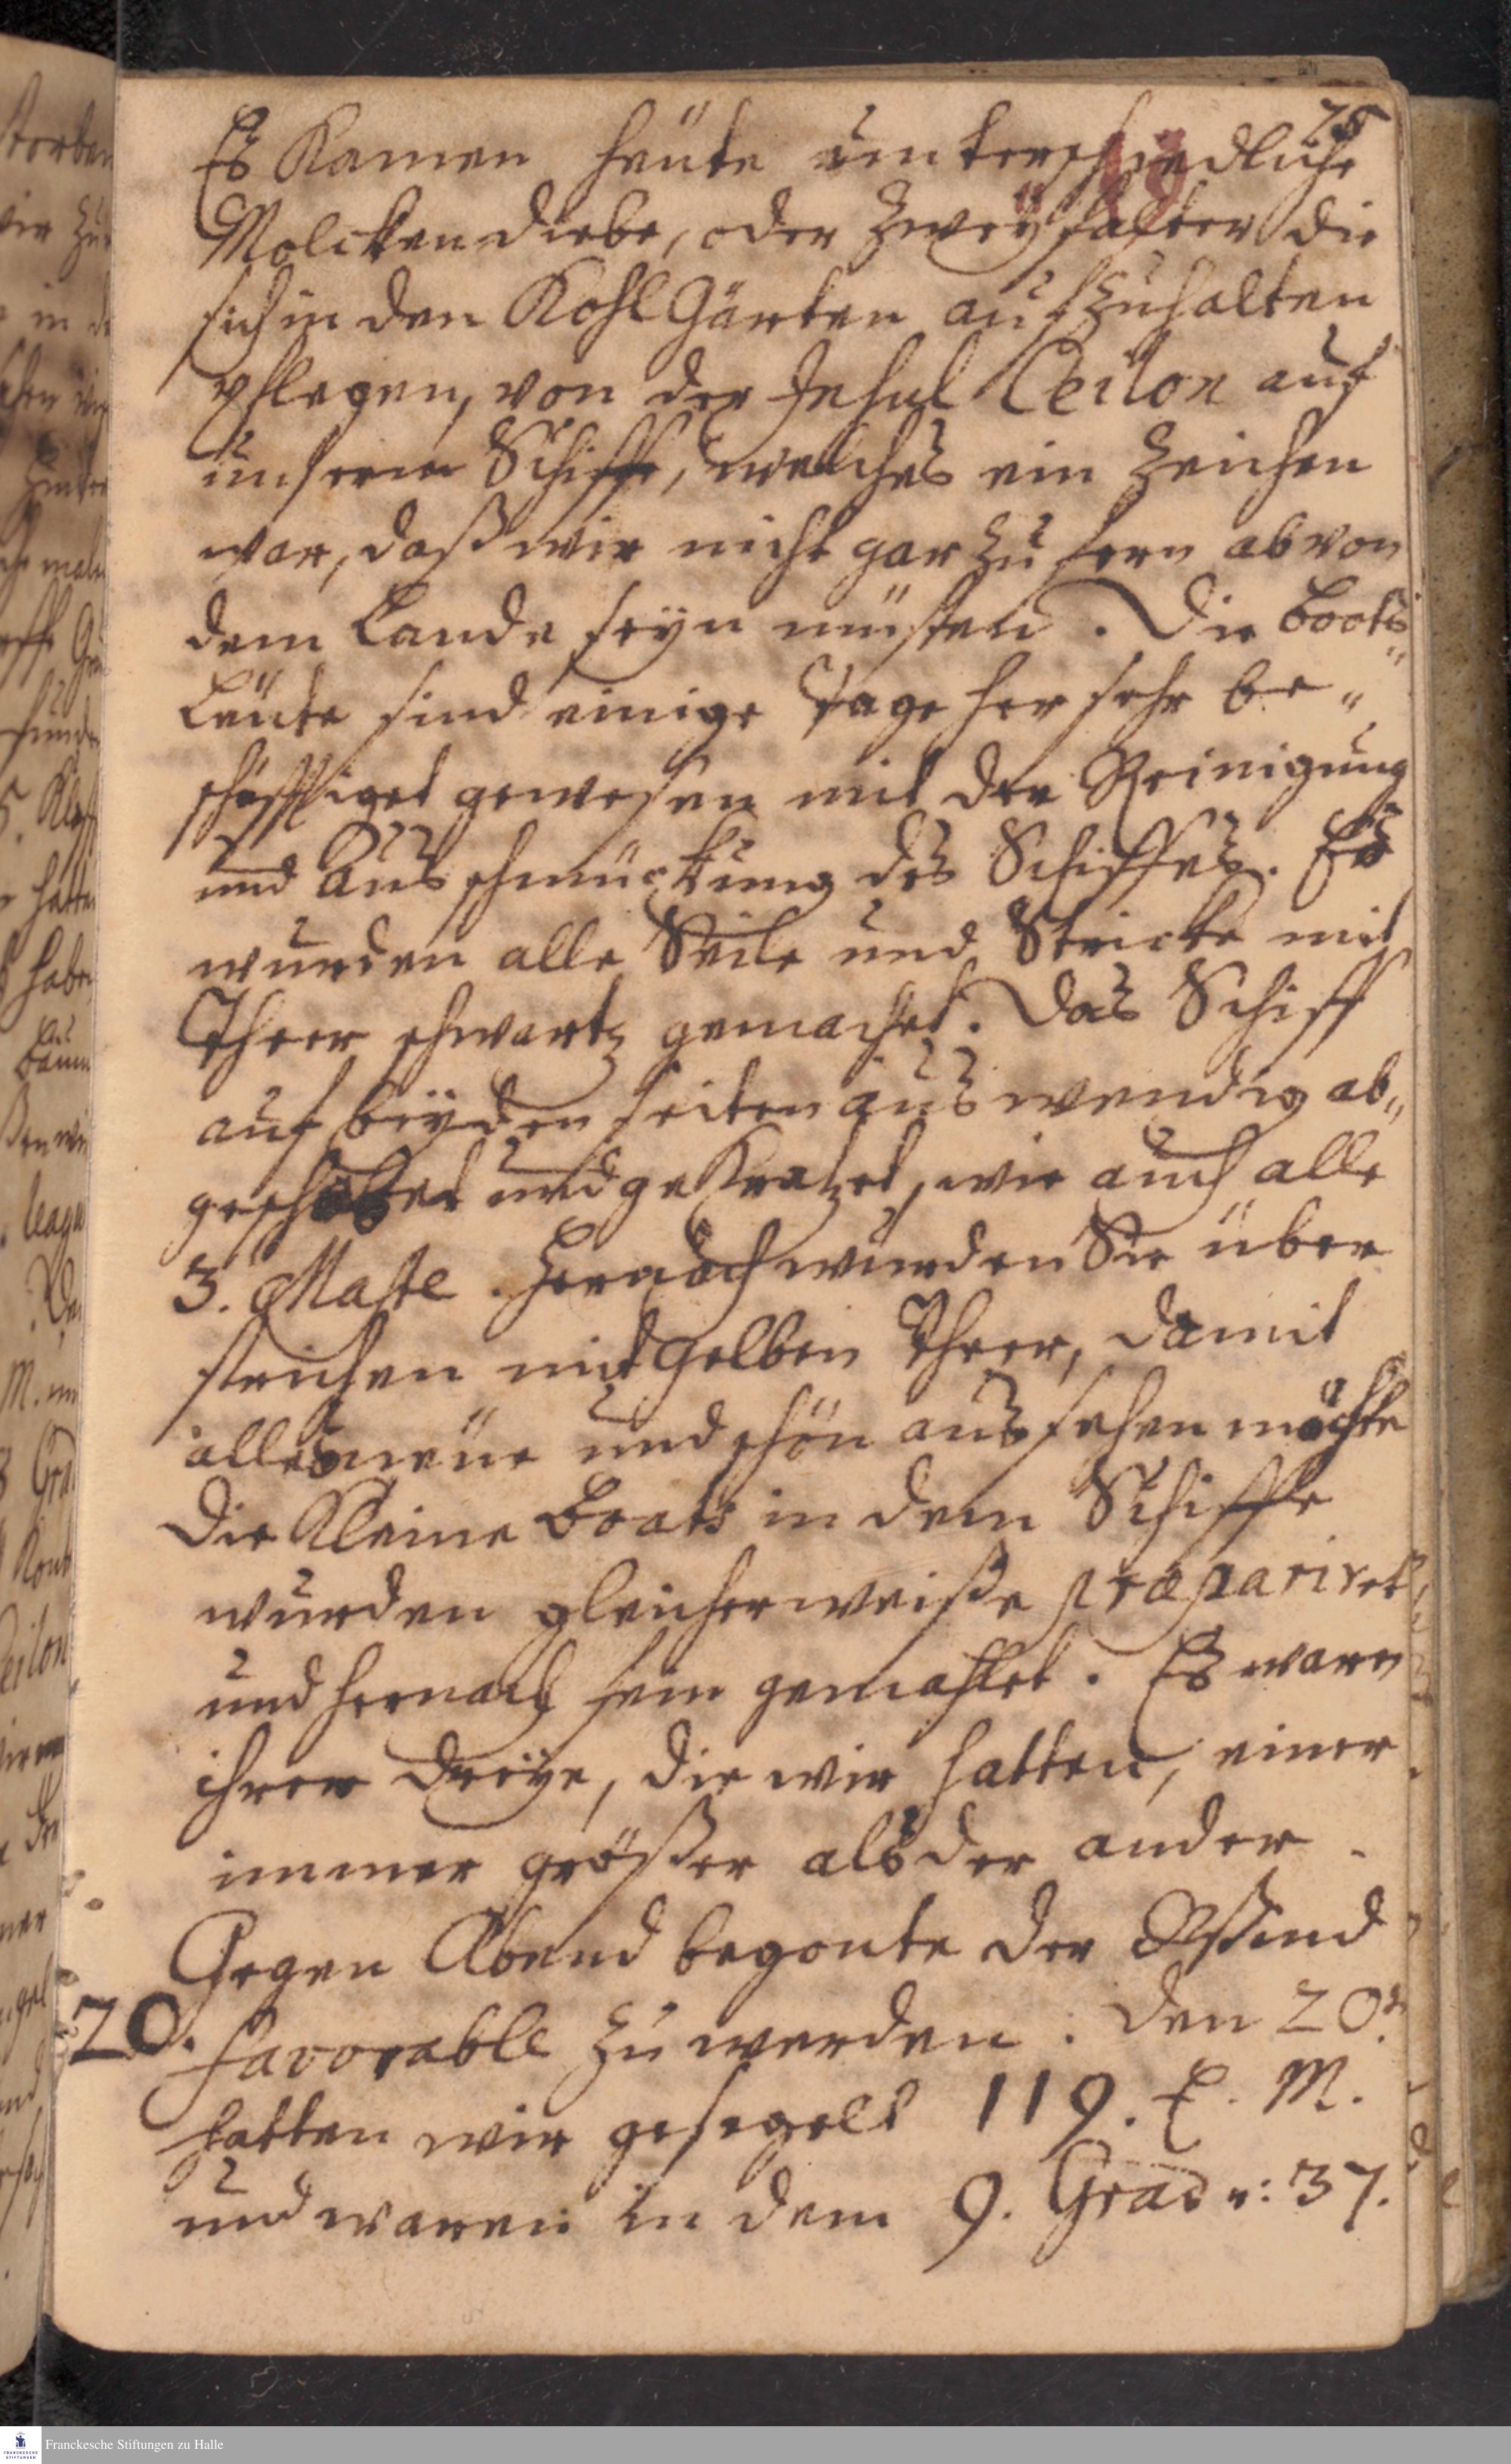 25
Es Kamen heüte unterschiedliche
Molckendiebe, oder Zweÿfalter die
sich in den KohlGärten aufzuhalten
pflegen, von der Jnsul Ceilon auf
unserm Schiffe, welches ein Zeichen
war, daß wir nicht gar zu fern ab von
dem Lande seÿn müsten. Die Boots
Leüte sind einige Tage her sehr be„
schäfftiget gewesen mit der Reinigung
und Ausschmückung des Schiffes. Es
wurden alle Seile und Stricke mit
Theer schwartz gemachet. Das Schiff
auf beÿden seiten auswendig ab„
geschabet und gekratzet, wie auch alle
3. Maste. Hernach wurden Sie über
strichen mit gelben Theer, damit
alles neüe und schön aussehen möchte
Die Kleine Boats in dem Schiffe
wurden gleicherweise præpariret
und hernach fein gemahlet. Es waren
ihrer dreÿe, die wir hatten, einer
immer größer als der ander.
Gegen Abend begonte der Wind
20. favorable zu werden. Den 20t.
hatten wir gesegelt 119. E. M.
und waren in dem 9. Grad u: 37.
Franckesche Stiftungen zu Halle